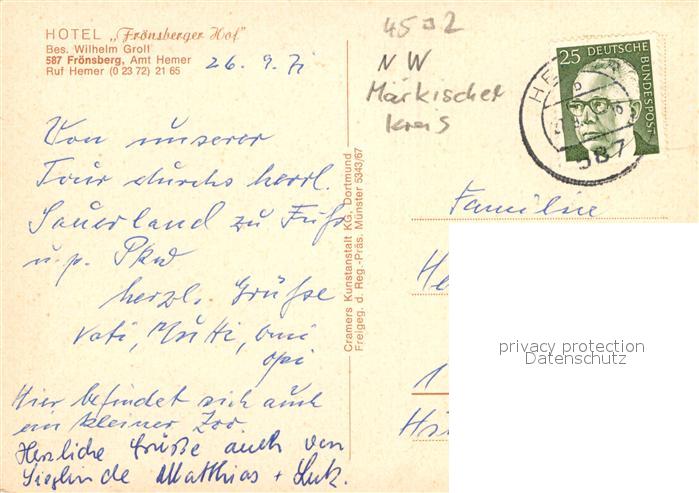 HOTEL „Frönsberger Hof"
Bes. Wilhelm Groll
587 Frönsberg, Amt Hemer
Ruf Hemer (0 23 72) 21 65
26. 9. 71
Von unserer
Tour durchs herrl.
Sauerland zu Fuß
u. p. Pkw
herzl. Grüße
Vati, Mutti, Omi
Opi
Hier befindet sich auch
ein kleiner Zoo.
Herzliche Grüße auch von
Sieglinde Matthias + Lutz.
Cramers Kunstanstalt KG, Dortmund
Freigeg. d. Reg.-Präs. Münster 5343/67
NW
Märkischer
Kreis
25 DEUTSCHE
BUNDESPOST
587
Familie
He
1
privacy protection
Datenschutz